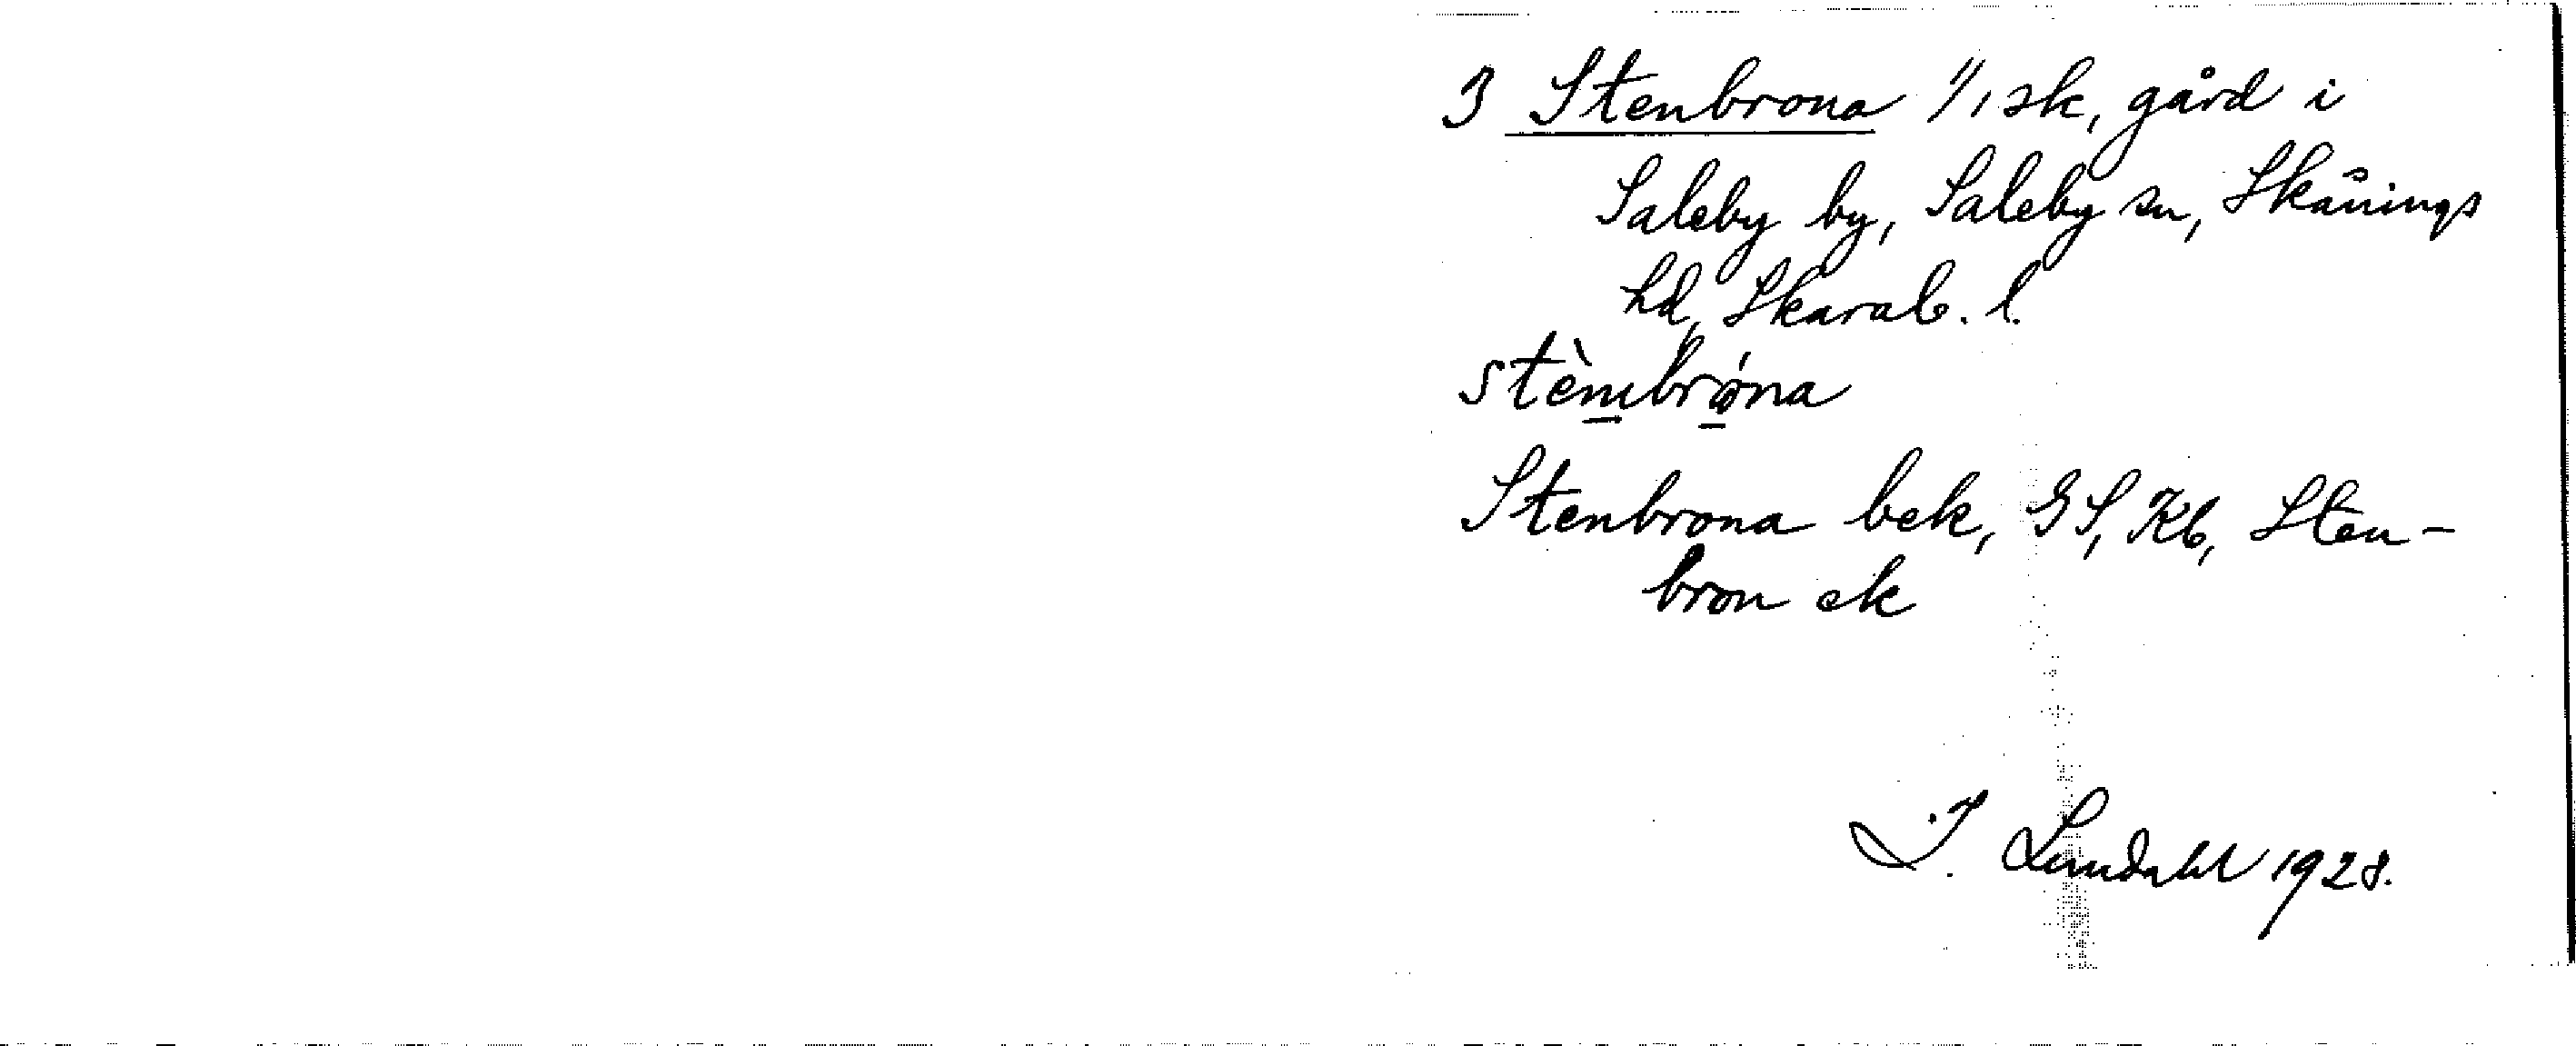 3 Stenbrona 1/1 sk, gård i
Saleby by, Saleby sn, Skånings
hd, Skarab. l.
stèmbrǿna
Stenbrona bek, GS, Kb, Sten-
bron ek
I. Lundahl 1928.